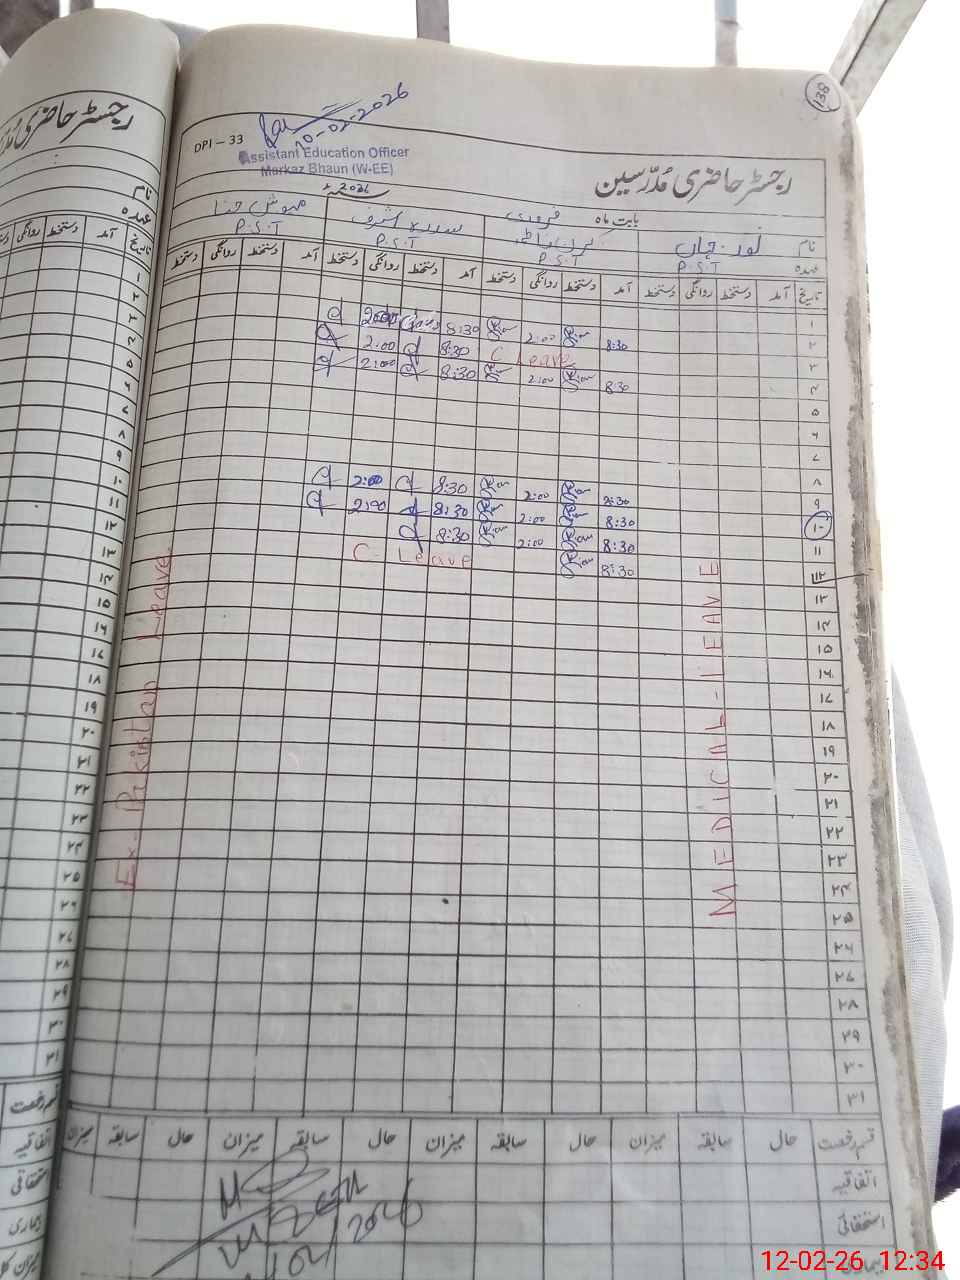 138
DPI – 33
10-02-2026
Assistant Education Officer
Markaz Bhaun (W-EE)
رجسٹر حاضری مُدرّسین
2026
بابت ماہ فروری
نام نور جہاں سدرہ اشرف مہوش حنا
عہدہ P.S.T P.S.T P.S.T P.S.T
تاریخ آمد دستخط روانگی دستخط آمد دستخط روانگی دستخط آمد دستخط روانگی دستخط آمد دستخط روانگی دستخط
۱
۲ 8:30 2:00 8:30 2:00
۳ C Leave 8:30 2:00
۴ 8:30 2:00 8:30 2:00
۵
۶
۷
۸
۹ 8:30 2:00 8:30 2:00
۱۰ 8:30 2:00 8:30 2:00
۱۱ 8:30 2:00 8:30
۱۲ 8:30 C- Leave
۱۳
۱۴
۱۵
۱۶
۱۷
۱۸
۱۹
۲۰
۲۱
۲۲
۲۳
۲۴
۲۵
۲۶
۲۷
۲۸
۲۹
۳۰
۳۱
MEDICAL-LEAVE
Ex. Pakistan Leave
قسم رخصت حال سابقہ میزان حال سابقہ میزان حال سابقہ میزان حال سابقہ میزان
اتفاقیہ
استحقاقی
بیماری
رجسٹر حاضری
نام
عہدہ
تاریخ آمد دستخط روانگی
۱
۲
۳
۴
۵
۶
۷
۸
۹
۱۰
۱۱
۱۲
۱۳
۱۴
۱۵
۱۶
۱۷
۱۸
۱۹
۲۰
۲۱
۲۲
۲۳
۲۴
۲۵
۲۶
۲۷
۲۸
۲۹
۳۰
۳۱
قسم رخصت
اتفاقیہ
استحقاقی
بیماری
12-02-26 12:34